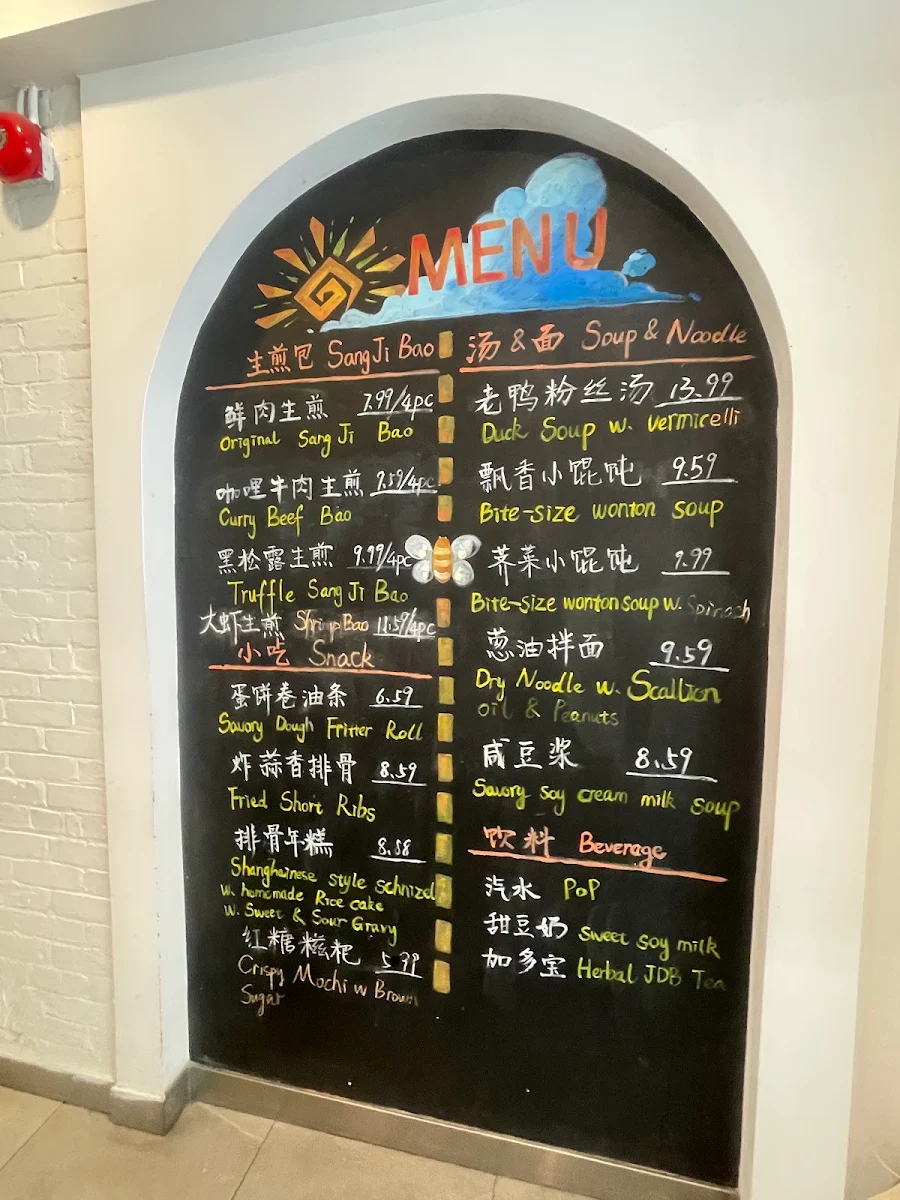 MENU
生煎包 SangJi Bao
鲜肉生煎 7.99/4pc
Original Sang Ji Bao
咖哩牛肉生煎 9.59/4pc
Curry Beef Bao
黑松露生煎 9.99/4pc
Truffle Sang Ji Bao
大虾生煎 Shrimp Bao 11.59/4pc
小吃 Snack
蛋饼卷油条 6.59
Savory Dough Fritter Roll
炸蒜香排骨 8.59
Fried Short Ribs
排骨年糕 8.88
Shanghainese style schnizel
w. homemade Rice cake
w. Sweet & Sour Gravy
红糖糍粑 5.99
Crispy Mochi w Brown
Sugar
汤&面 Soup & Noodle
老鸭粉丝汤 13.99
Duck Soup w. vermicelli
飘香小馄饨 9.59
Bite-size wonton soup
荠菜小馄饨 9.99
Bite-size wonton soup w. Spinach
葱油拌面 9.59
Dry Noodle w. Scallion
oil & Peanuts
咸豆浆 8.59
Savory soy cream milk soup
饮料 Beverage
汽水 PoP
甜豆奶 sweet soy milk
加多宝 Herbal JDB Tea